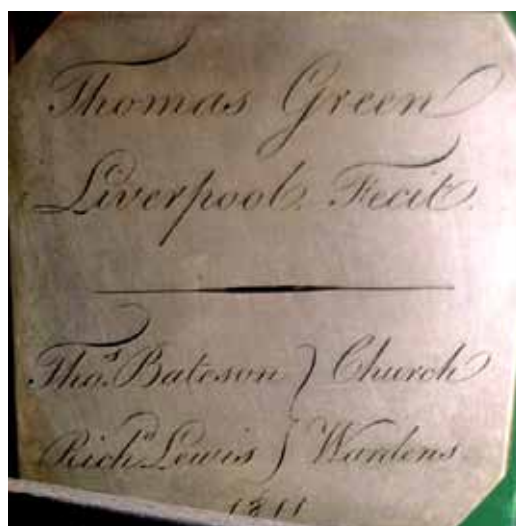 Thomas Green
Liverpool Fecit.
Thos. Bateson } Church
Richd. Lewis } Wardens.
1811